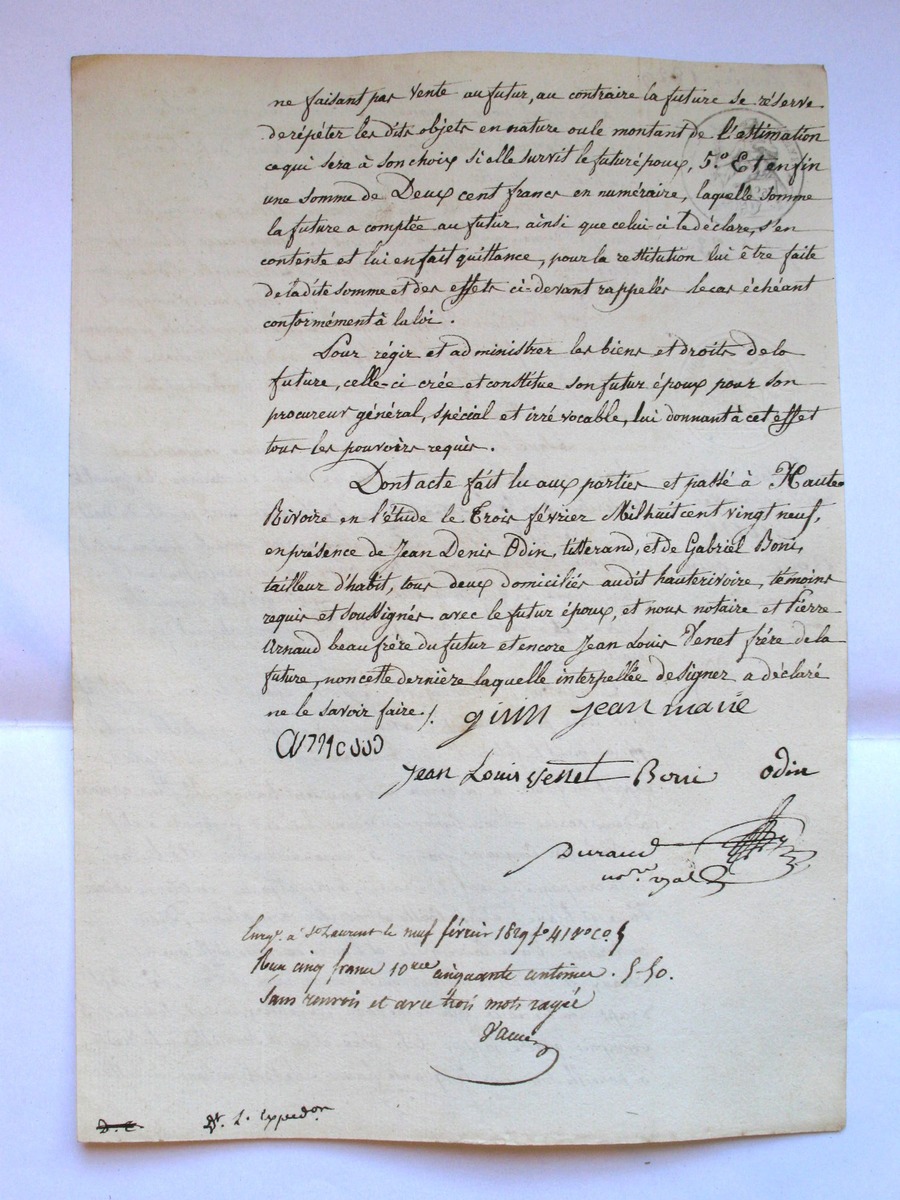 ne faisant pas vente au futur, au contraire la future se réserve
de répéter les dits objets en nature ou le montant de l'estimation
ce qui sera à son choix si elle survit le futur époux, 5.° Et enfin
une somme de Deux cent francs en numéraire, laquelle somme
la future a comptée au futur ainsi que celui-ci le déclare, s'en
contente et lui en fait quittance, pour la restitution lui être faite
de la dite somme et des effets ci-devant rappellés le cas échéant
conformément à la loi.
Pour régir et administrer les biens et droits de la
future, celle-ci crée et constitue son futur époux pour son
procureur général, spécial et irrévocable, lui donnant à cet effet
tous les pouvoirs requis.
Dont acte fait lu aux parties et passé à Haute
Rivoire en l'étude le Trois février Mil huit cent vingt neuf,
en présence de Jean Denis Odin, tisserand, et de Gabriel Boni,
tailleur d'habit, tous deux domiciliés audit hauterivoire, témoins
requis et soussignés avec le futur époux, et nous notaire et Pierre
Arnaud beau frére du futur et encore Jean Louis Venet frére de la
future, non cette dernière laquelle interpellée de signer a déclaré
ne le savoir faire /.
jean marie
Jean Louis Venet Boni odin
Durand
no.re
Enreg. à St Laurent le neuf février 1829 f° 41 v° c. 5
Reçu cinq francs 10eme cinquante centimes. 5-50.
Sans renvois et avec trois mots rayés
D. E
1. Expedon